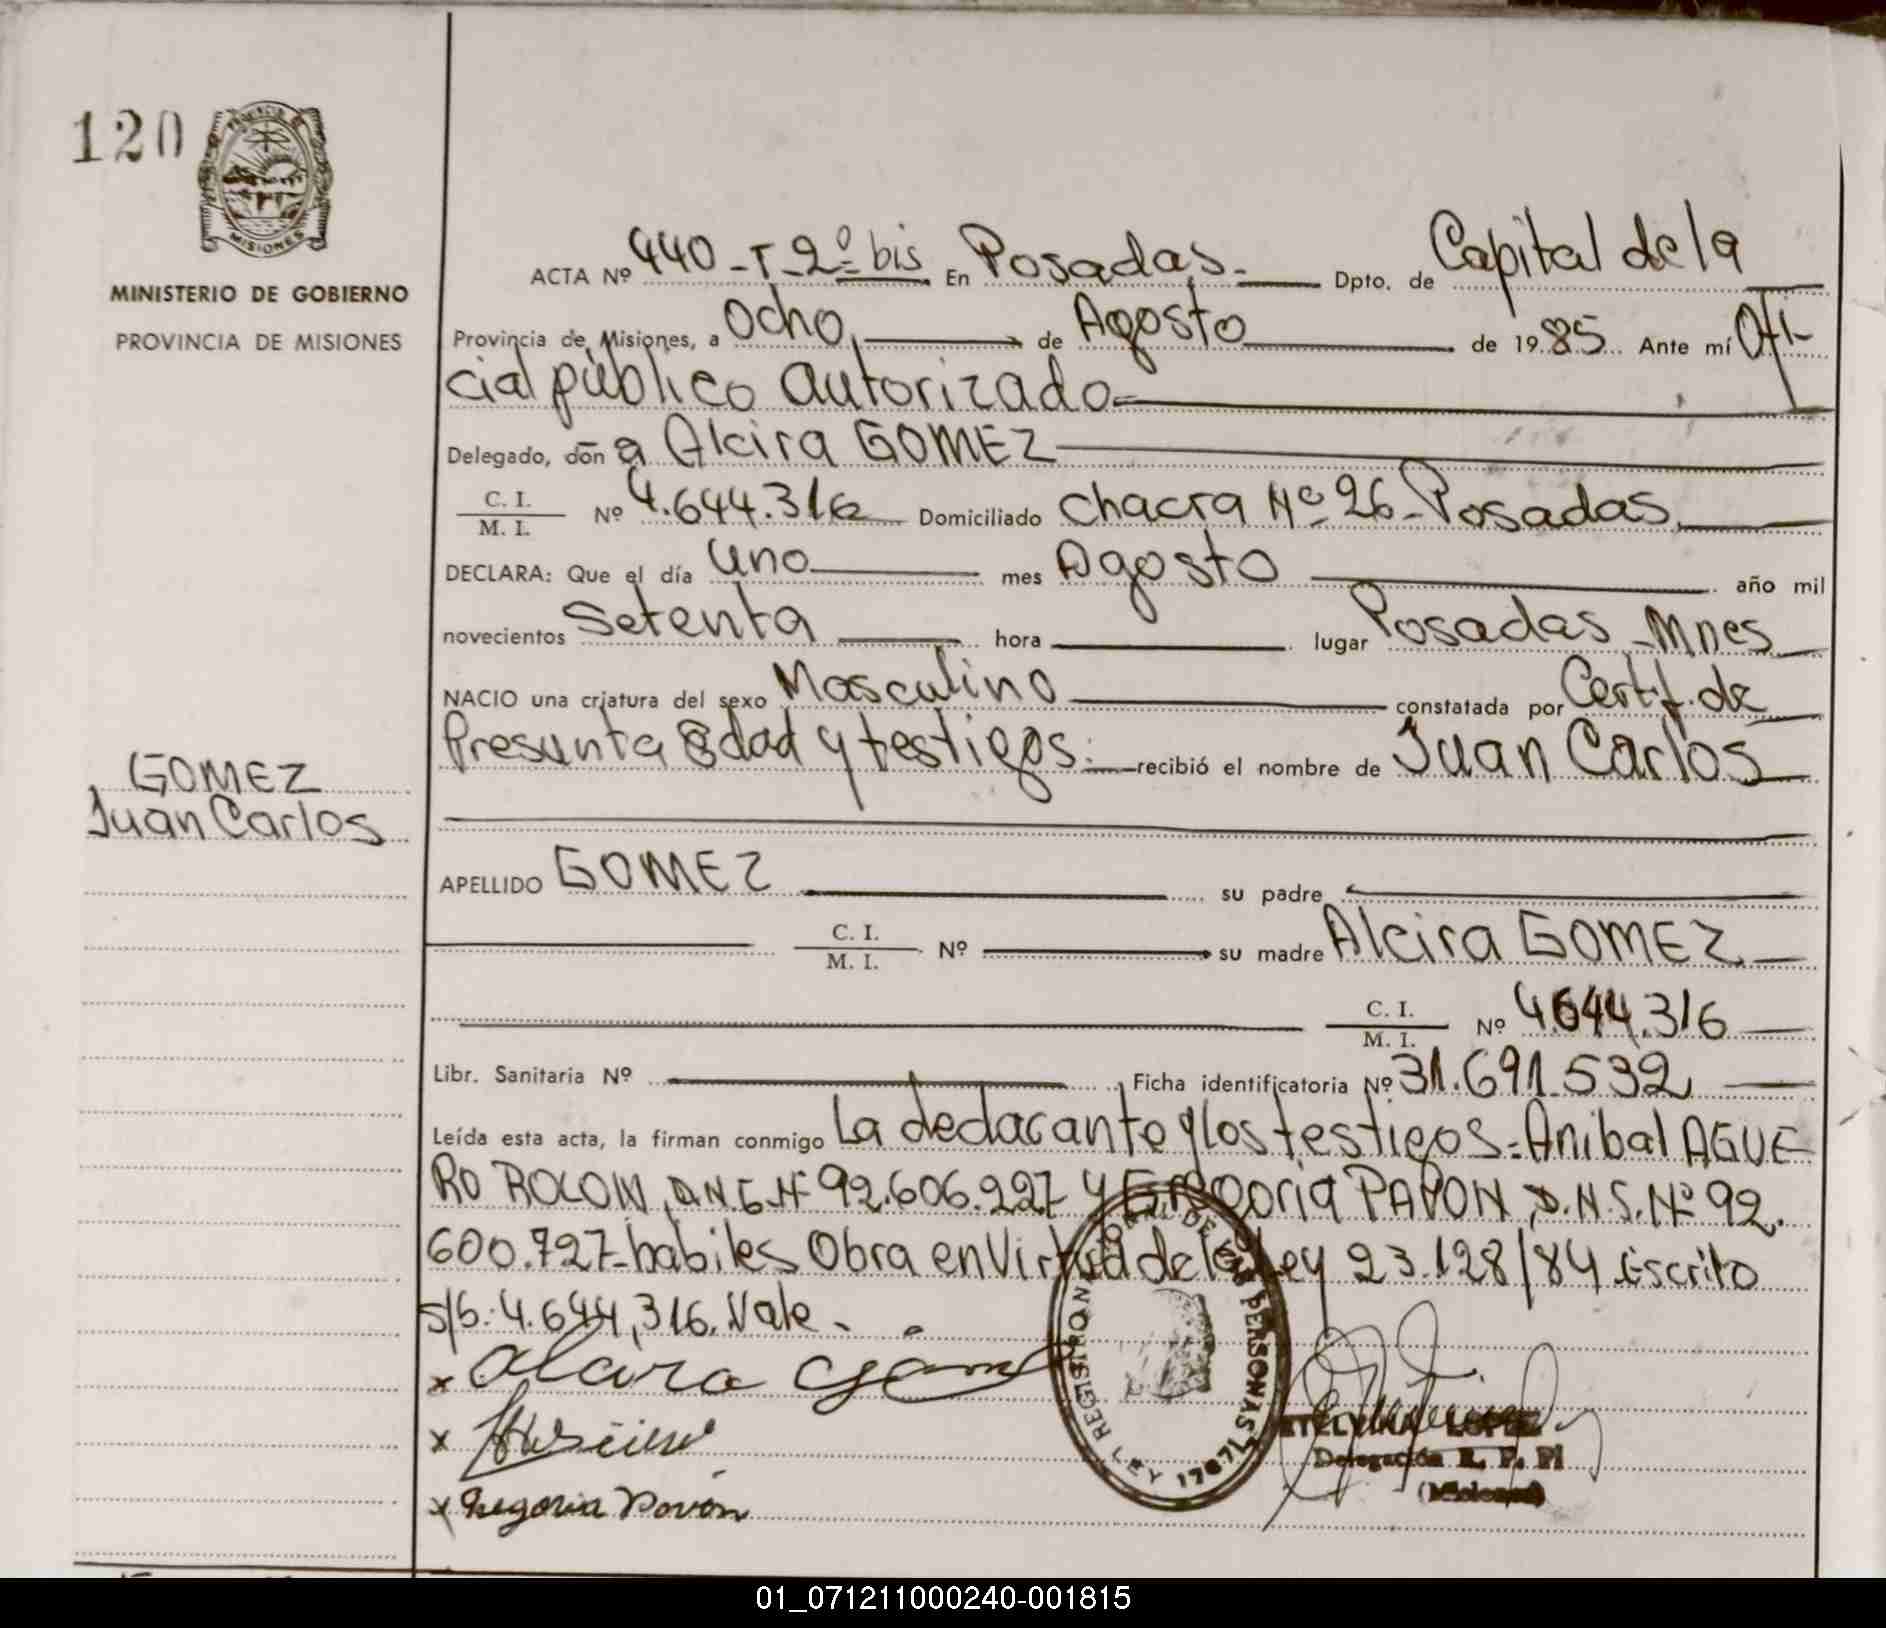 120
MISIONES
MINISTERIO DE GOBIERNO
PROVINCIA DE MISIONES
ACTA Nº 440-T-2º bis En Posadas. Dpto. de Capital de la
Provincia de Misiones, a Ocho de Agosto de 1985 Ante mí Ofi-
cial público autorizado
Delegado, don a Alcira GOMEZ
C. I. M. I. Nº 4.644.316 Domiciliado Chacra Nº 26-Posadas
DECLARA: Que el día uno mes Agosto año mil
novecientos Setenta hora lugar Posadas-Mnes
NACIO una criatura del sexo Masculino constatada por Certf. de
Presunta Edad y testigos. recibió el nombre de Juan Carlos
GOMEZ
Juan Carlos
APELLIDO GOMEZ su padre
C. I. M. I. Nº su madre Alcira GOMEZ
C. I. M. I. Nº 4.644.316
Libr. Sanitaria Nº Ficha identificatoria Nº 31.691.532
Leída esta acta, la firman conmigo La declarante y los testigos: Anibal AGUE
RO ROLON, Nº 92.606.227 y Gregoria PAVON, Nº 92.
600.727-habiles Obra en Virtud de la Ley 23.128/84 Escrito
s/b: 4.644.316. Vale.
x Alcira Gómez
x
x Gregoria Pavón
REGISTRO NACIONAL DE LAS PERSONAS
LEY 17671
LOPEZ
Delegación R. P. Pl
(Misiones)
01_071211000240-001815